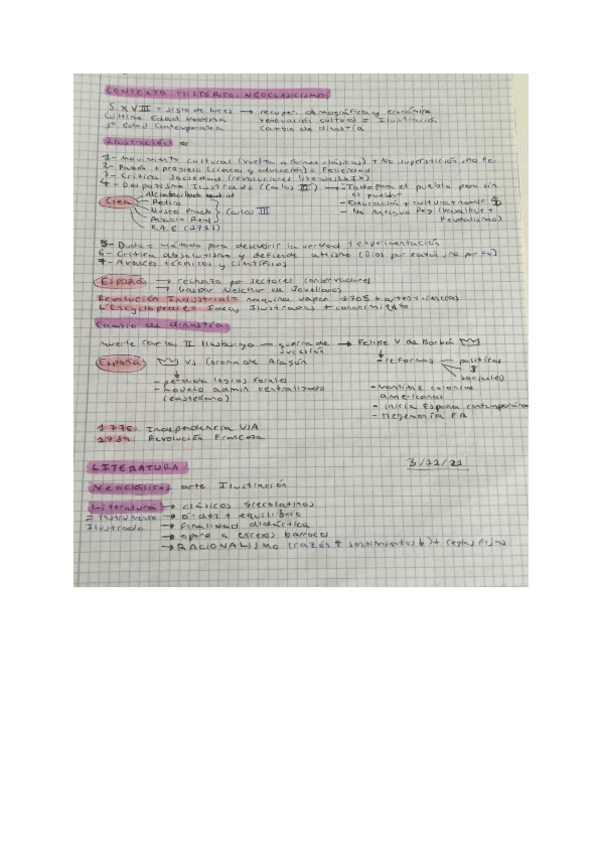 CONTEXTO HISTÓRICO: NEOCLASICISMO
S. XVIII = siglo de luces → recuper. demográfica y económica
última Edad Moderna renovación cultural = Ilustración
1º Edad Contemporánea cambio de dinastía
Ilustración =
1- Movimiento cultural (vuelta a formas clásicas) + No superstición, no Fe.
2- Razón + progreso (ciencia y educación) = Felicidad
3- Crítica Sociedad (revoluciones liberales XIX)
4- Despotismo Ilustrado (Carlos III) → - Todo para el pueblo pero sin el pueblo
Crea
Alcantarillado
Medira
Museo Prado
Palacio Real
Carlos III
R.A.E (1713)
- Educación + cultura
- No Antiguo Reg (vasallaje + feudalismo)
5- Duda = método para descubrir la verdad + experimentación
6- Crítica absolutismo y defiende (Dios por razón, no por Fe)
7- Avances técnicos y científicos
España → rechazo por sectores conservadores
→ Gaspar Melchor de Jovellanos
Revolución Industrial = maquina vapor 1705 + artes y ciencias
L'Encyclopédie = Ilustradas + conocimiento
Cambio de dinastía
Muerte Carlos II Habsburgo → guerra de sucesión → Felipe V de Borbón
España vs Corona de Aragón
- pérdida legios forales
- nuevo admin centralizado (castellano)
- reformas políticas y sociales
- Mantiene colonias americanas
- inicia España contemporánea
- Hegemonía FR
1776 Independencia USA
1789 Revolución Francesa
LITERATURA 3/11/21
Neoclásico: arte Ilustración
Literatura = instrumento Ilustrado
→ clásicos grecolatinos
→ orden + equilibrio
→ Finalidad didáctica
→ opone a excesos barrocos
→ RACIONALISMO (razón ↑ sentimientos ↓) + reglas fijas